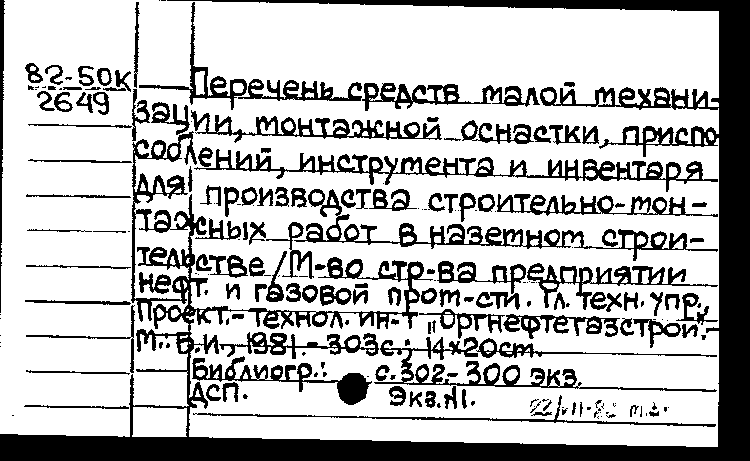 82-50к
2649
Перечень средств малой механи-
зации, монтажной оснастки, приспо
соблений, инструмента и инвентаря
для производства строительно-мон-
тажных работ в наземном строи-
тельстве / М-во стр-ва предприятии
нефт. и газовой пром-сти. Гл. техн. упр.,
Проект.-технол. ин-т "Оргнефтегазстрой".-
М.: Б.и., 1981.- 303с.; 14×20см.
Библиогр.: с.302.- 300 экз.
ДСП. Экз.№1.